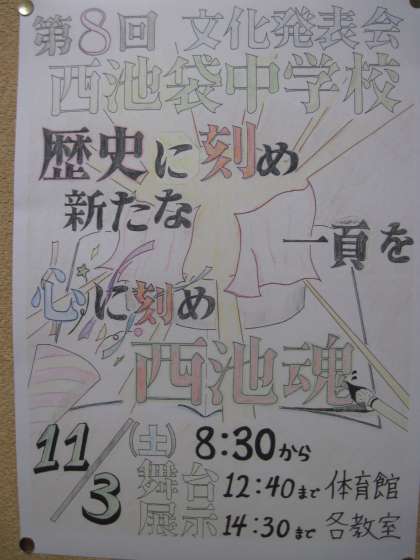 第8回 文化発表会
西池袋中学校
歴史に刻め
新たな
一頁を
心に刻め
西池魂
11/3 (土) 8:30から
舞台 12:40まで 体育館
展示 14:30まで 各教室